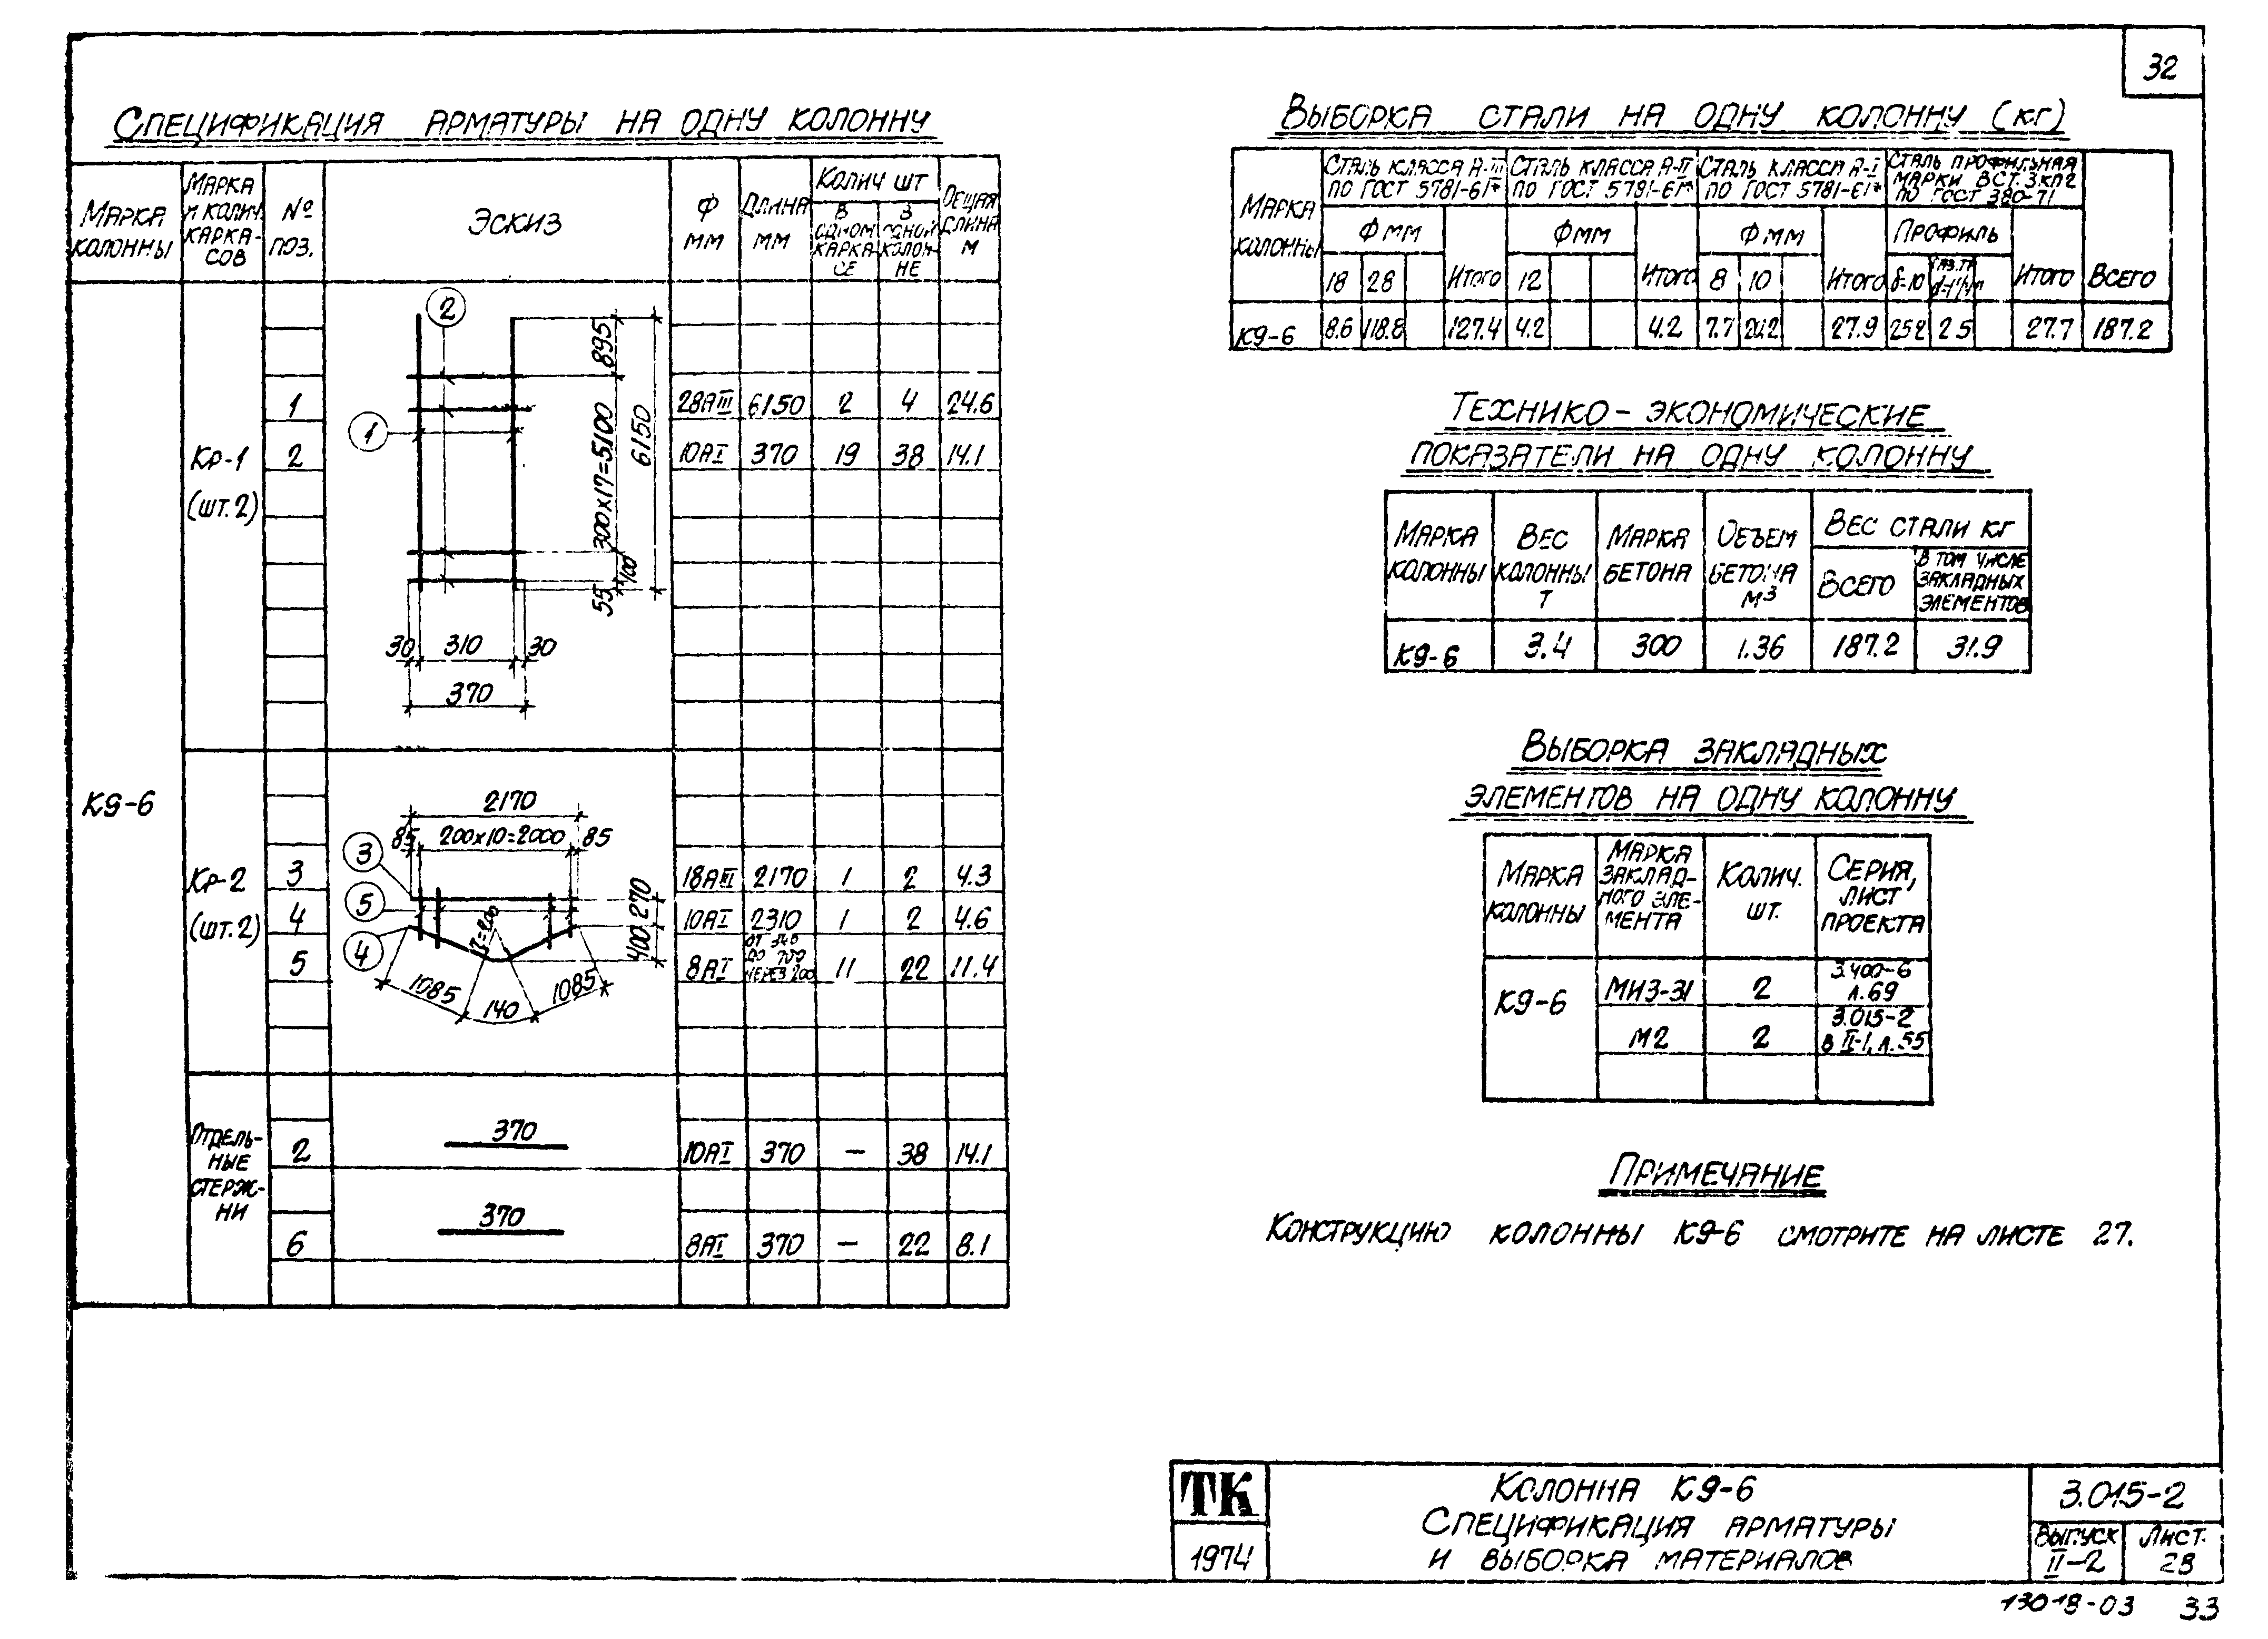 32
Спецификация арматуры на одну колонну
Марка колонны
Марка и колич. каркасов
№ поз.
Эскиз
Ф мм
Длина мм
Колич шт
В одном каркасе
В одной колонне
Общая длина м
К9-6
Кр-1
(шт.2)
2
1
895
300х17=5100
6150
100
55
30 310 30
370
1 28АIII 6150 2 4 24.6
2 10АI 370 19 38 14.1
Кр-2
(шт.2)
2170
85 200х10=2000 85
3
5
4
270
400
1085 140 1085
3 18АIII 2170 1 2 4.3
4 10АI 2310 1 2 4.6
5 8АI через 200 11 22 11.4
Отдельные стержни
2 370 10АI 370 — 38 14.1
6 370 8АI 370 — 22 8.1
Выборка стали на одну колонну (кг)
Марка колонны
Сталь класса А-III по ГОСТ 5781-61*
Сталь класса А-II по ГОСТ 5781-61*
Сталь класса А-I по ГОСТ 5781-61*
Сталь профильная марки ВСТ.3кп2 по ГОСТ 380-71
Всего
Ф мм Ф мм Ф мм Профиль
18 28 Итого 12 Итого 8 10 Итого δ=10 Итого
К9-6 8.6 118.8 127.4 4.2 4.2 7.7 20.2 27.9 25.2 2.5 27.7 187.2
Технико-экономические
показатели на одну колонну
Марка колонны
Вес колонны т
Марка бетона
Объем бетона м3
Вес стали кг
Всего
в том числе закладных элементов
К9-6 3.4 300 1.36 187.2 31.9
Выборка закладных
элементов на одну колонну
Марка колонны
Марка закладного элемента
Колич. шт.
Серия, лист проекта
К9-6
МИЗ-31 2 3.400-6 л.69
М2 2 3.015-2 в II-1, л.55
Примечание
Конструкцию колонны К9-6 смотрите на листе 27.
ТК
1974
Колонна К9-6
Спецификация арматуры
и выборка материалов
3.015-2
Выпуск II-2
Лист. 28
13018-03 33